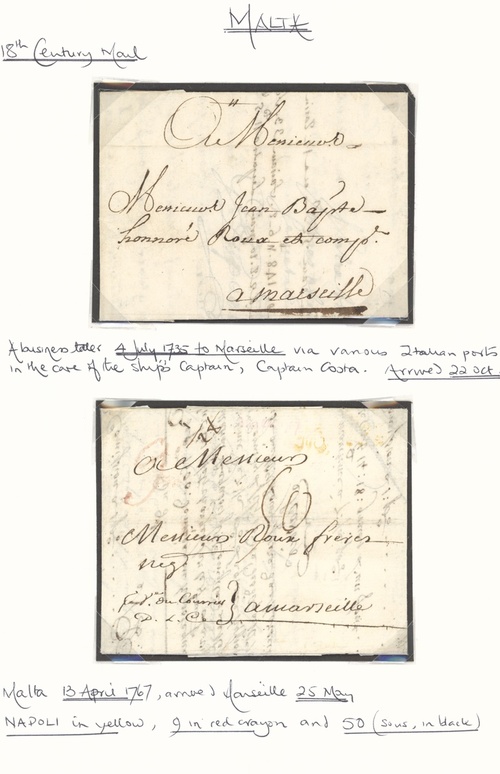 MALTA
18th Century Mail
A Monsieur
Monsieur Jean Bapte
honnoré Roux et compe.
a marseille
A business letter 4 July 1735 to Marseille via various Italian ports
in the care of the ship's Captain, Captain Costa. Arrived 22 Oct.
A Messieurs
Messieurs Roux freres
negt
a marseille
D. L. C.
Malta 13 April 1767, arrived Marseille 25 May
NAPOLI in yellow, 9 in red crayon and 50 (sous, in black)